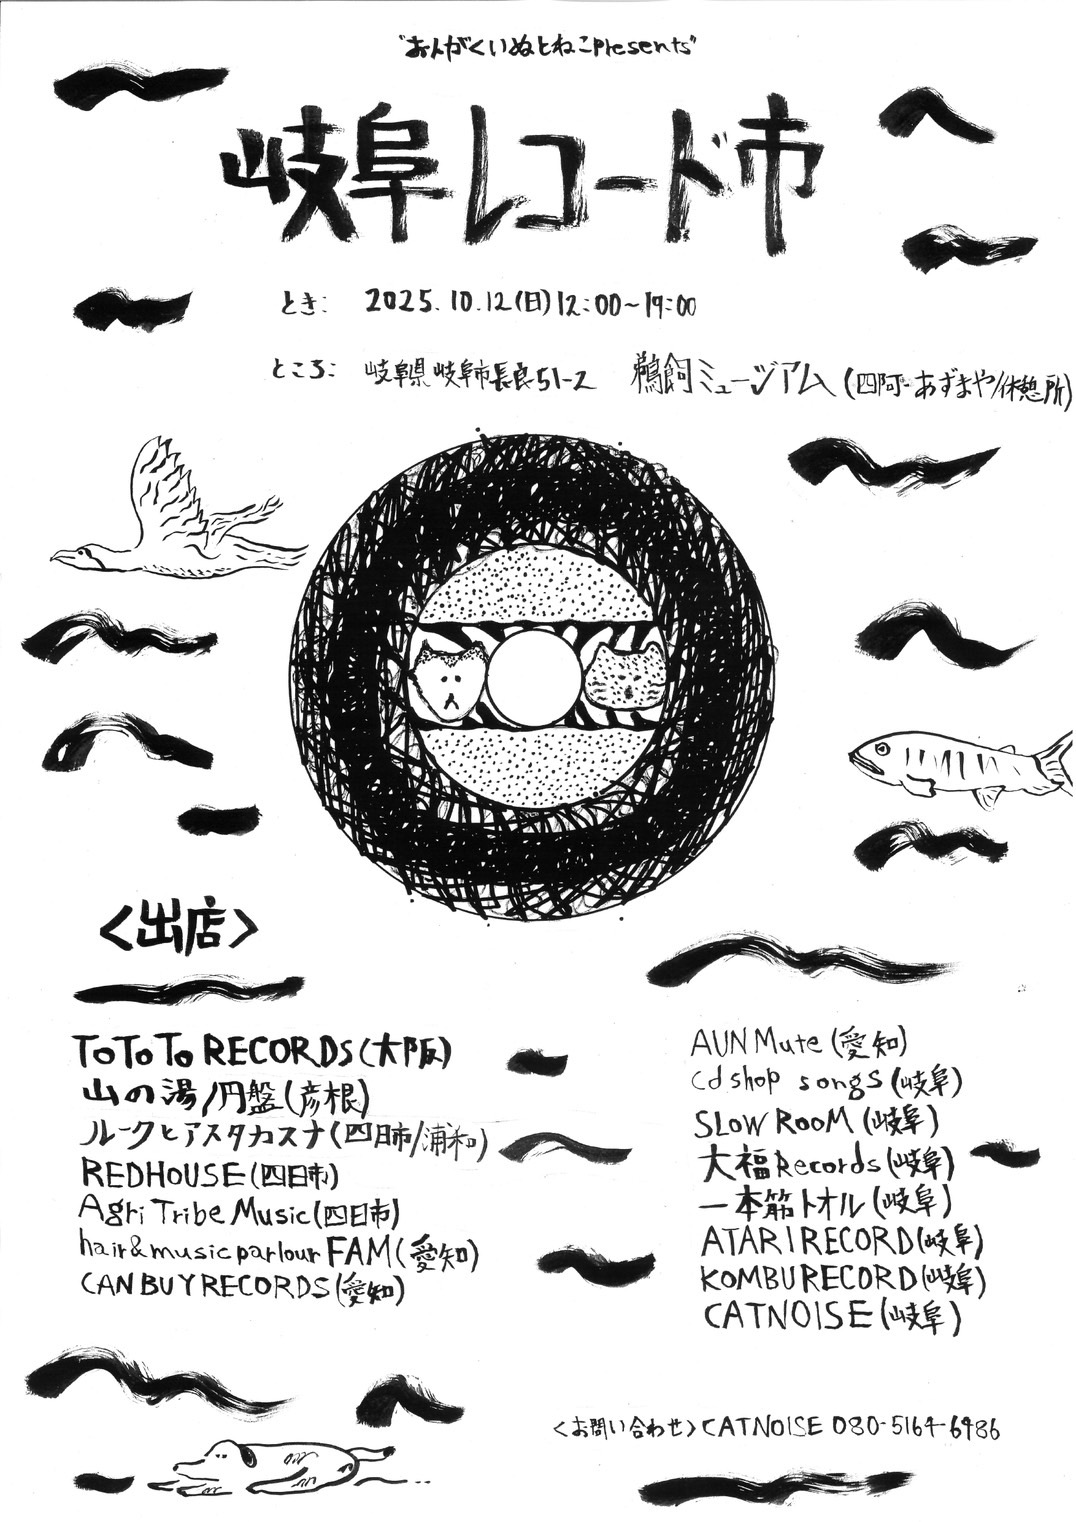 "おんがくいぬとねこpresents"
岐阜レコード市
とき: 2025.10.12(日)12:00~19:00
ところ: 岐阜県岐阜市長良51-2 鵜飼ミュージアム(四阿-あずまや/休憩所)
<出店>
ToToTo RECORDS(大阪)
山の湯/円盤(彦根)
ルークとアスタカスナ(四日市/浦和)
REDHOUSE(四日市)
Agri Tribe Music(四日市)
hair&music parlour FAM(愛知)
CAN BUY RECORDS(愛知)
AUN Mute(愛知)
cd shop songs(岐阜)
SLOW ROOM(岐阜)
大福Records(岐阜)
一本筋トオル(岐阜)
ATARIRECORD(岐阜)
KOMBURECORD(岐阜)
CATNOISE(岐阜)
<お問い合わせ>CATNOISE 080-5164-6986